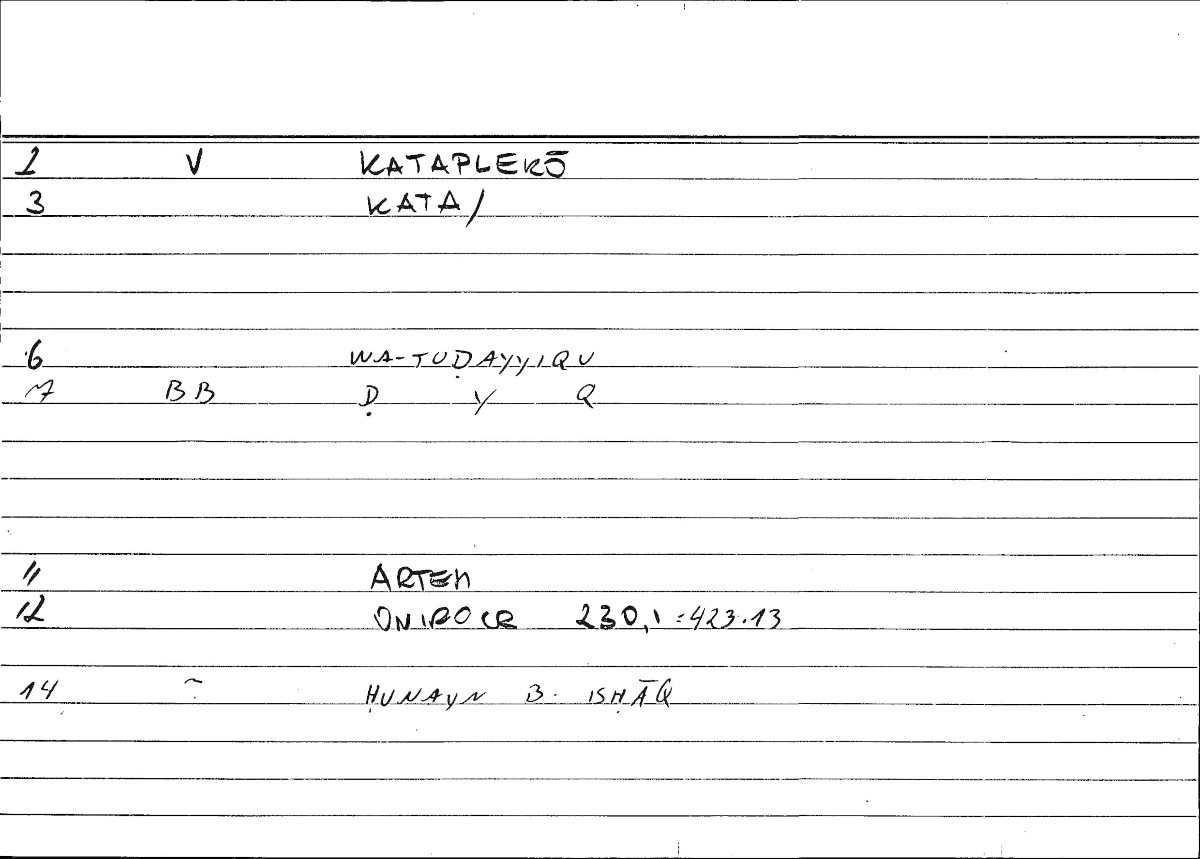 2 V KATAPLERŌ
3 KATA/
6 WA-TUḌAYYIQU
7 BB Ḍ Y Q
11 ARTEM
12 ONIROCR 230,1=423.13
14 ~ ḤUNAYN B. ISḤĀQ